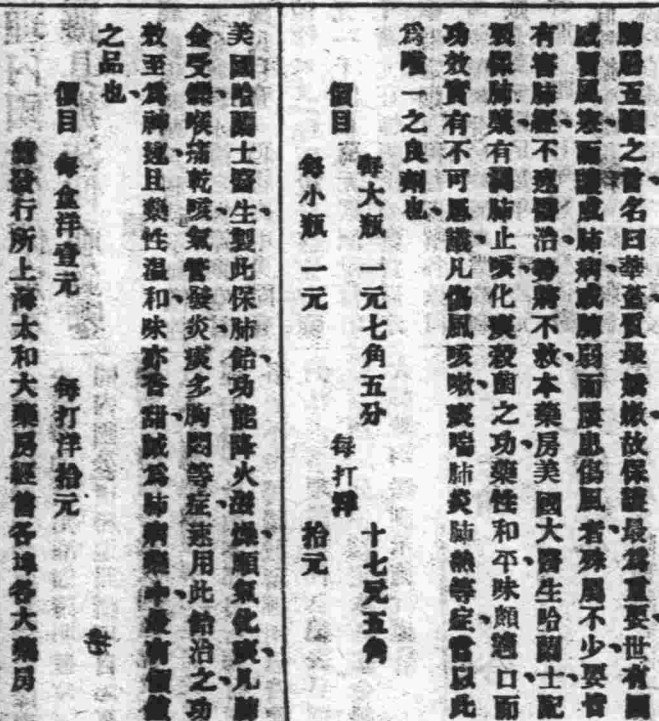 肺居五臟之首名曰華蓋質最嬌嫩故保護最爲重要世有
感冒風寒而釀成肺病或肺弱而屢患傷風者殊屬不少要皆
有害肺經不速醫治勢將不救本藥房美國大醫生哈蘭士配
製保肺漿有潤肺止咳化痰殺菌之功藥性和平味頗適口而
功效實有不可思議凡傷風咳嗽痰喘肺炎肺熱等症當以此
爲唯一之良劑也
價目 每大瓶 一元七角五分 每打洋 十七元五角
每小瓶 一元 拾元
美國哈蘭士醫生製此保肺飴功能降火潤燥順氣化痰凡肺
金受燥喉痛乾咳氣管發炎痰多胸悶等症速用此飴治之功
效至爲神速且藥性溫和味亦香甜誠爲肺病藥中最有價値
之品也
價目 每盒洋壹元 每打洋拾元
總發行所上海太和大藥房經售各埠各大藥房